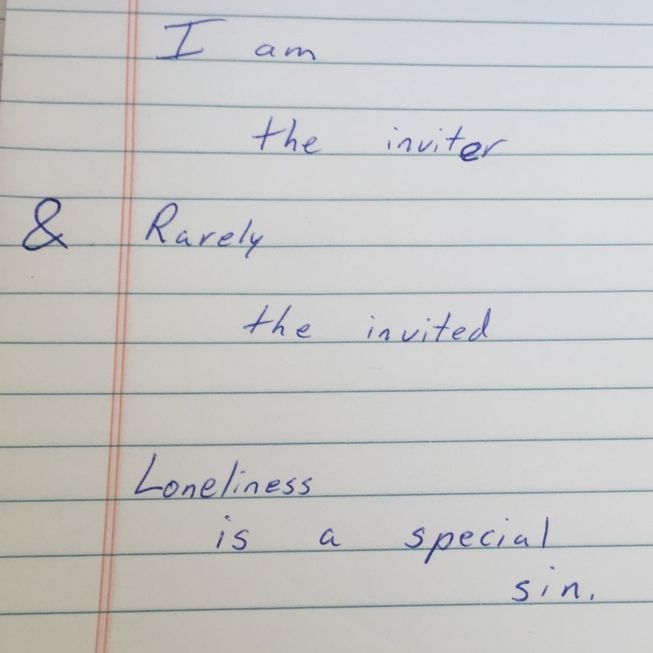 I am
the inviter
& Rarely
the invited
Loneliness
is a special
sin.